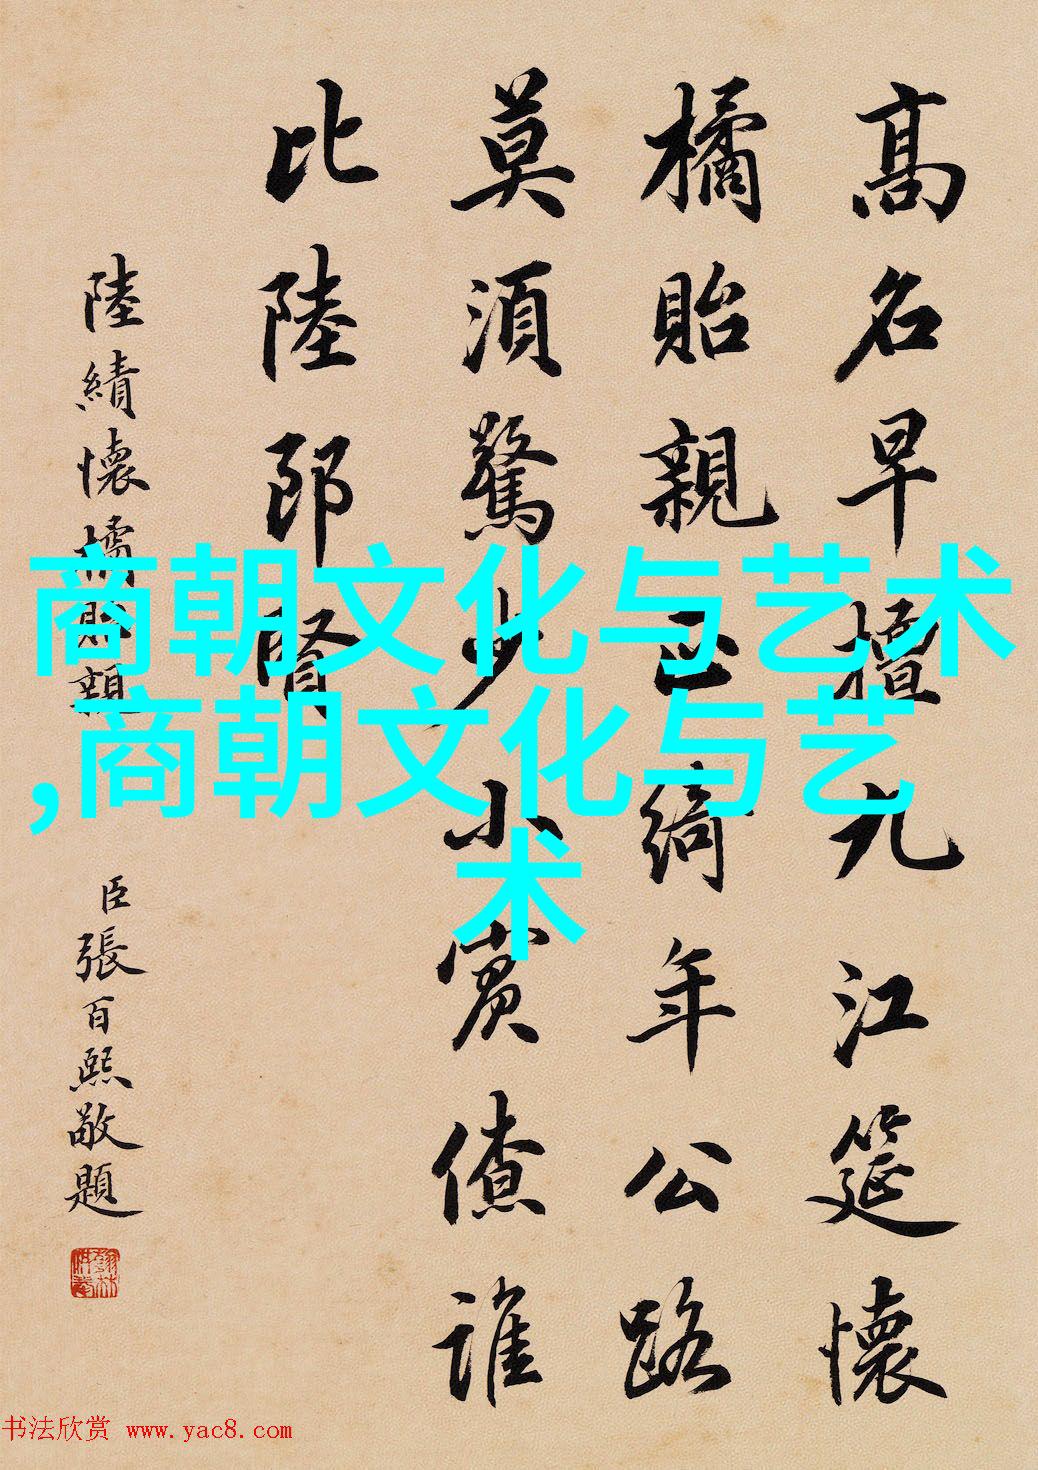 髙名早擅九江筵懷
橘貽親正綺年公路
莫須驚少小賓僚誰
比陸郎賢
陸績懷橘貽親
臣張百熙敬題
商朝文化与艺术
,商朝文化与艺
术
书法欣赏 www.yac8.com